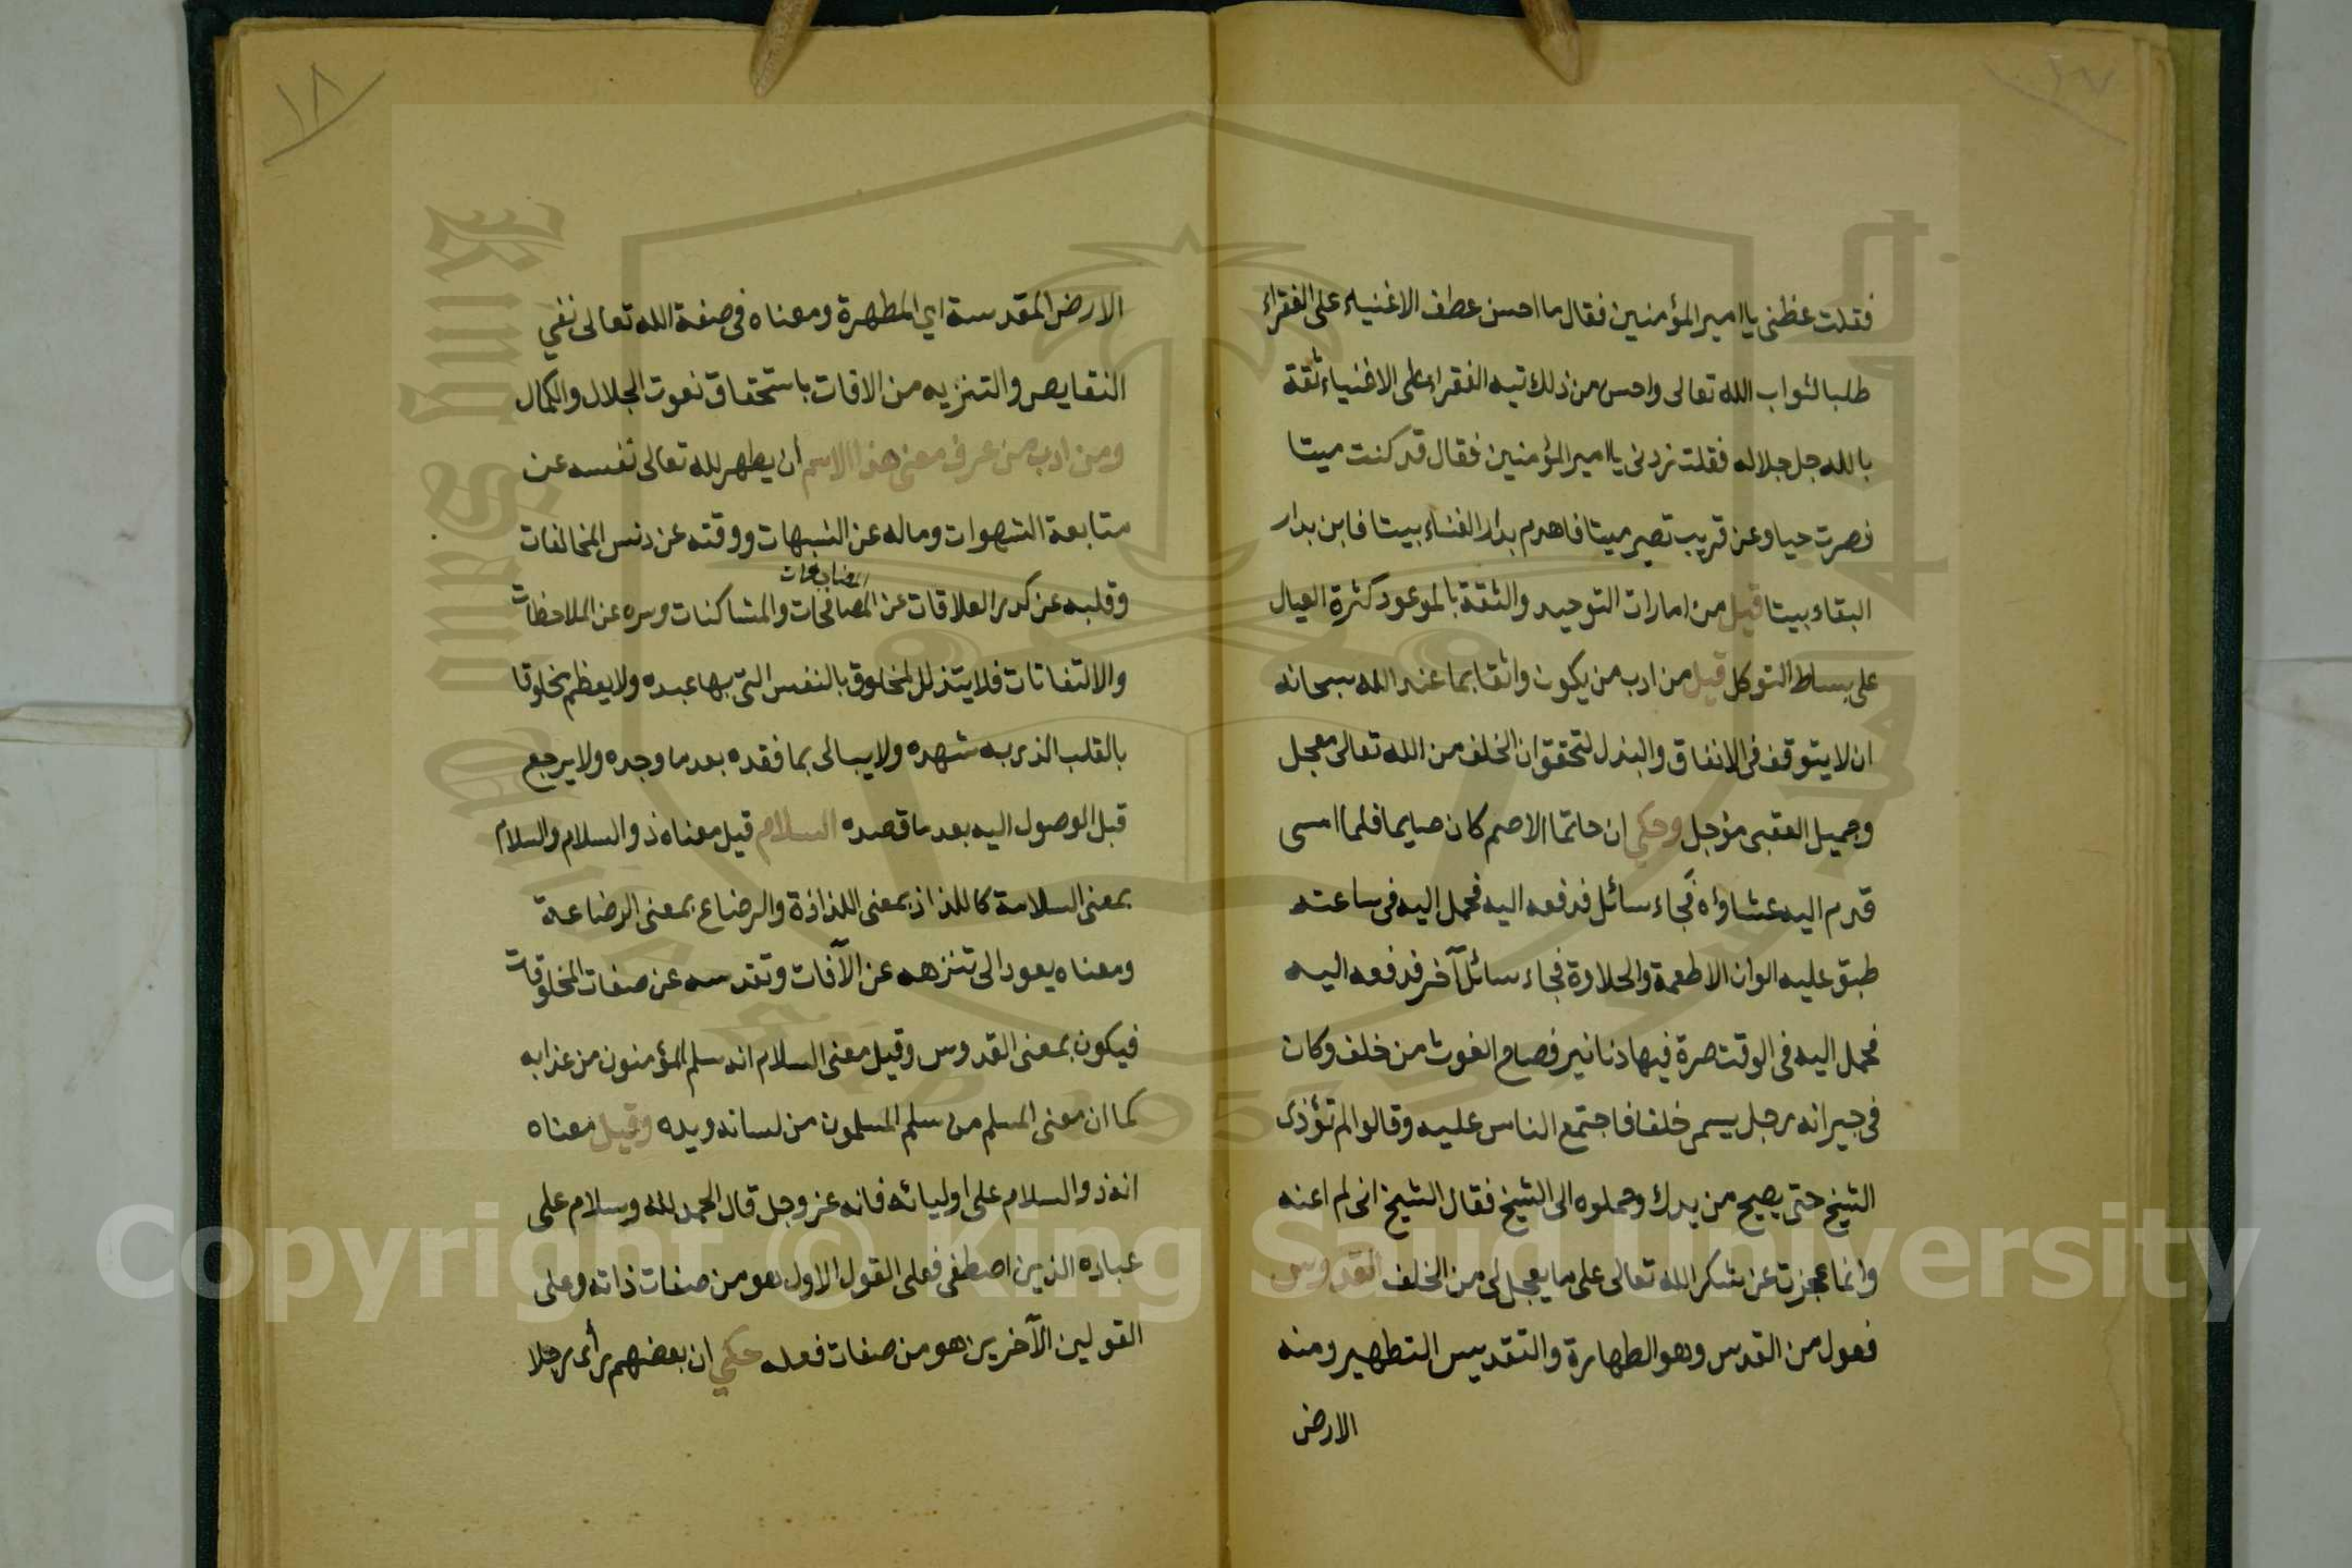 ١٧
فقلت عظنى يا امير المؤمنين فقال ما احسن عطف الاغنياء على الفقراء
طلبا لثواب الله تعالى واحسن من ذلك تيه الفقراء على الاغنياء ثقة
بالله جل جلاله فقلت زدنى يا امير المؤمنين فقال قد كنت ميتا
فصرت حيا وعن قريب تصير ميتا فاهدم بدار الفناء بيتا فابن بدار
البقاء بيتا قيل من امارات التوحيد والثقة بالموعود كثرة العيال
على بساط التوكل قيل من ادب من يكون واثقا بما عند الله سبحانه
ان لا يتوقف فى الانفاق والبذل لتحقق ان الخلف من الله تعالى معجل
وجميل العقبى مؤجل وحكي ان حاتما الاصم كان صايما فلما امسى
قدم اليه عشاؤه فجاء سائل فدفعه اليه فحمل اليه فى ساعته
طبق عليه الوان الاطعمة والحلاوة فجاء سائل آخر فدفعه اليه
فحمل اليه فى الوقت صرة فيها دنانير فصاح الغوث من خلف وكان
فى جيرانه رجل يسمى خلفا فاجتمع الناس عليه وقالوا لم تؤذى
الشيخ حتى يصيح من يدك وحملوه الى الشيخ فقال الشيخ انى لم اعنه
وانما عجزت عن شكر الله تعالى على ما يعجل لى من الخلف القدوس
فعول من القدس وهو الطهارة والتقديس التطهير ومنه
الارض
١٨
الارض المقدسة اي المطهرة ومعناه فى صفة الله تعالى نفي
النقايص والتنزيه من الافات باستحقاق نعوت الجلال والكمال
ومن ادب من عرف معنى هذا الاسم أن يطهر لله تعالى نفسه عن
متابعة الشهوات وماله عن الشبهات ووقته عن دنس المخالفات
المضاجعات
وقلبه عن كدر العلاقات عن المصافحات والمشاكنات وسره عن الملاحظات
والالتفاتات فلا يتذلل لمخلوق بالنفس التى بها عبده ولا يعظم مخلوقا
بالقلب الذى به شهده ولا يبالى بما فقده بعد ما وجده ولا يرجع
قبل الوصول اليه بعد ما قصده السلام قيل معناه ذو السلام والسلام
بمعنى السلامة كاللذاذ بمعنى اللذاذة والرضاع بمعنى الرضاعة
ومعناه يعود الى تنزهه عن الآفات وتقدسه عن صفات المخلوقات
فيكون بمعنى القدوس وقيل معنى السلام انه سلم المؤمنون من عذابه
كما ان معنى المسلم من سلم المسلمون من لسانه ويده وقيل معناه
انه ذو السلام على اوليائه فانه عز وجل قال الحمد لله وسلام على
عباده الذين اصطفى فعلى القول الاول هو من صفات ذاته وعلى
القولين الآخرين هو من صفات فعله حكي ان بعضهم رأى رجلا
King Saud University
1957
Copyright © King Saud University